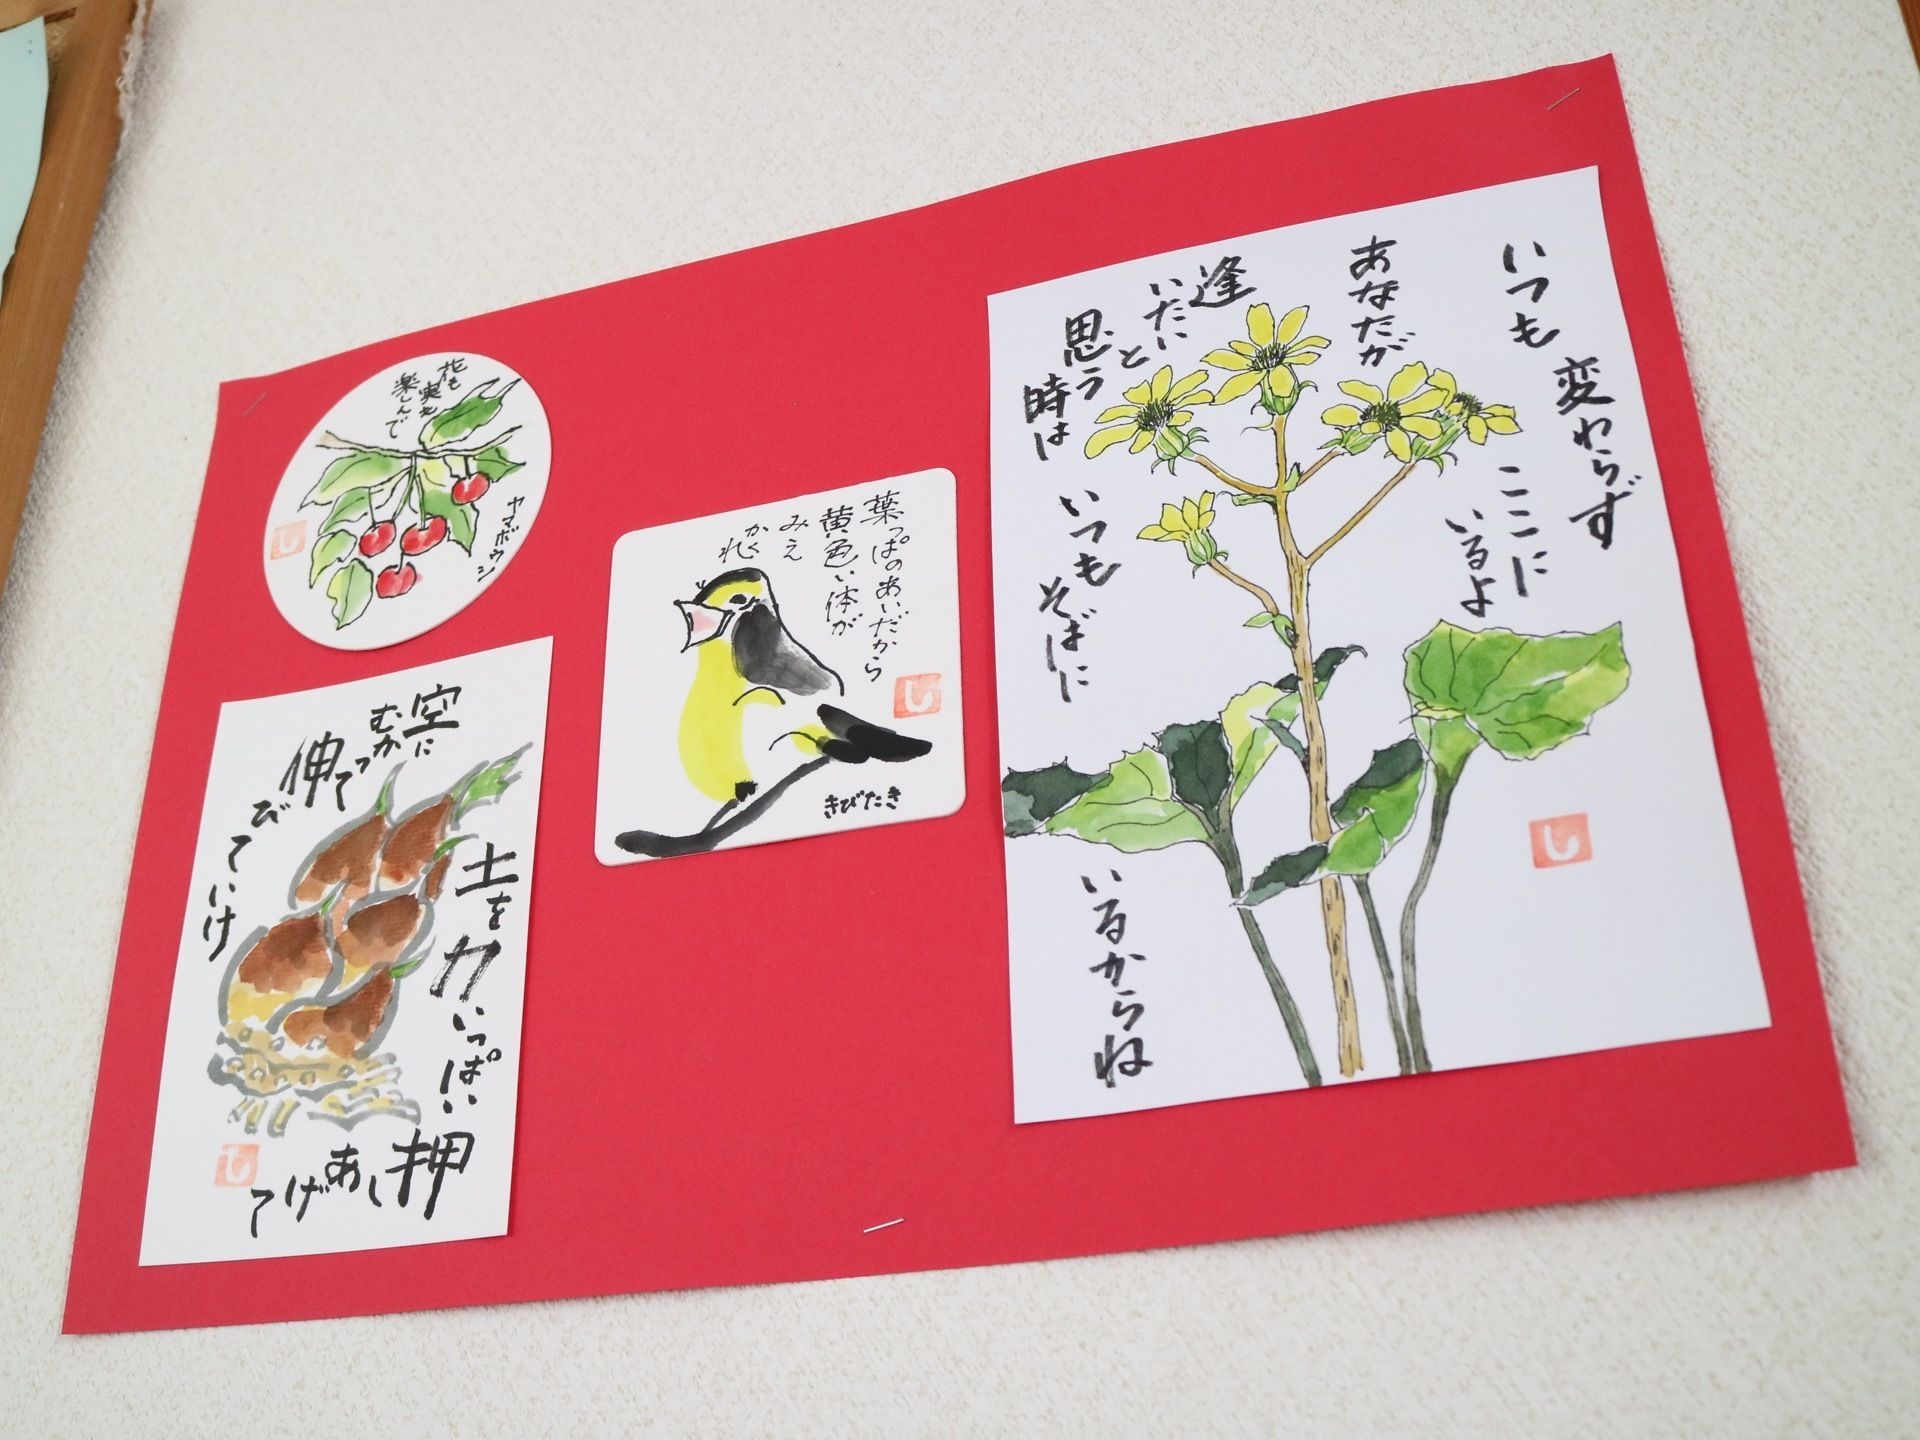 いつも
変わらず
ここに
いるよ
あなたが
逢
いたい
と
思う
時は
いつも
そばに
いるからね
し
葉っぱのあいだから
黄色い体が
みえ
かくれ
きびたき
し
花も
実も
楽しんで
ヤマボウシ
し
土を
力いっぱい
押
しあげて
空に
むかって
伸
びていけ
し